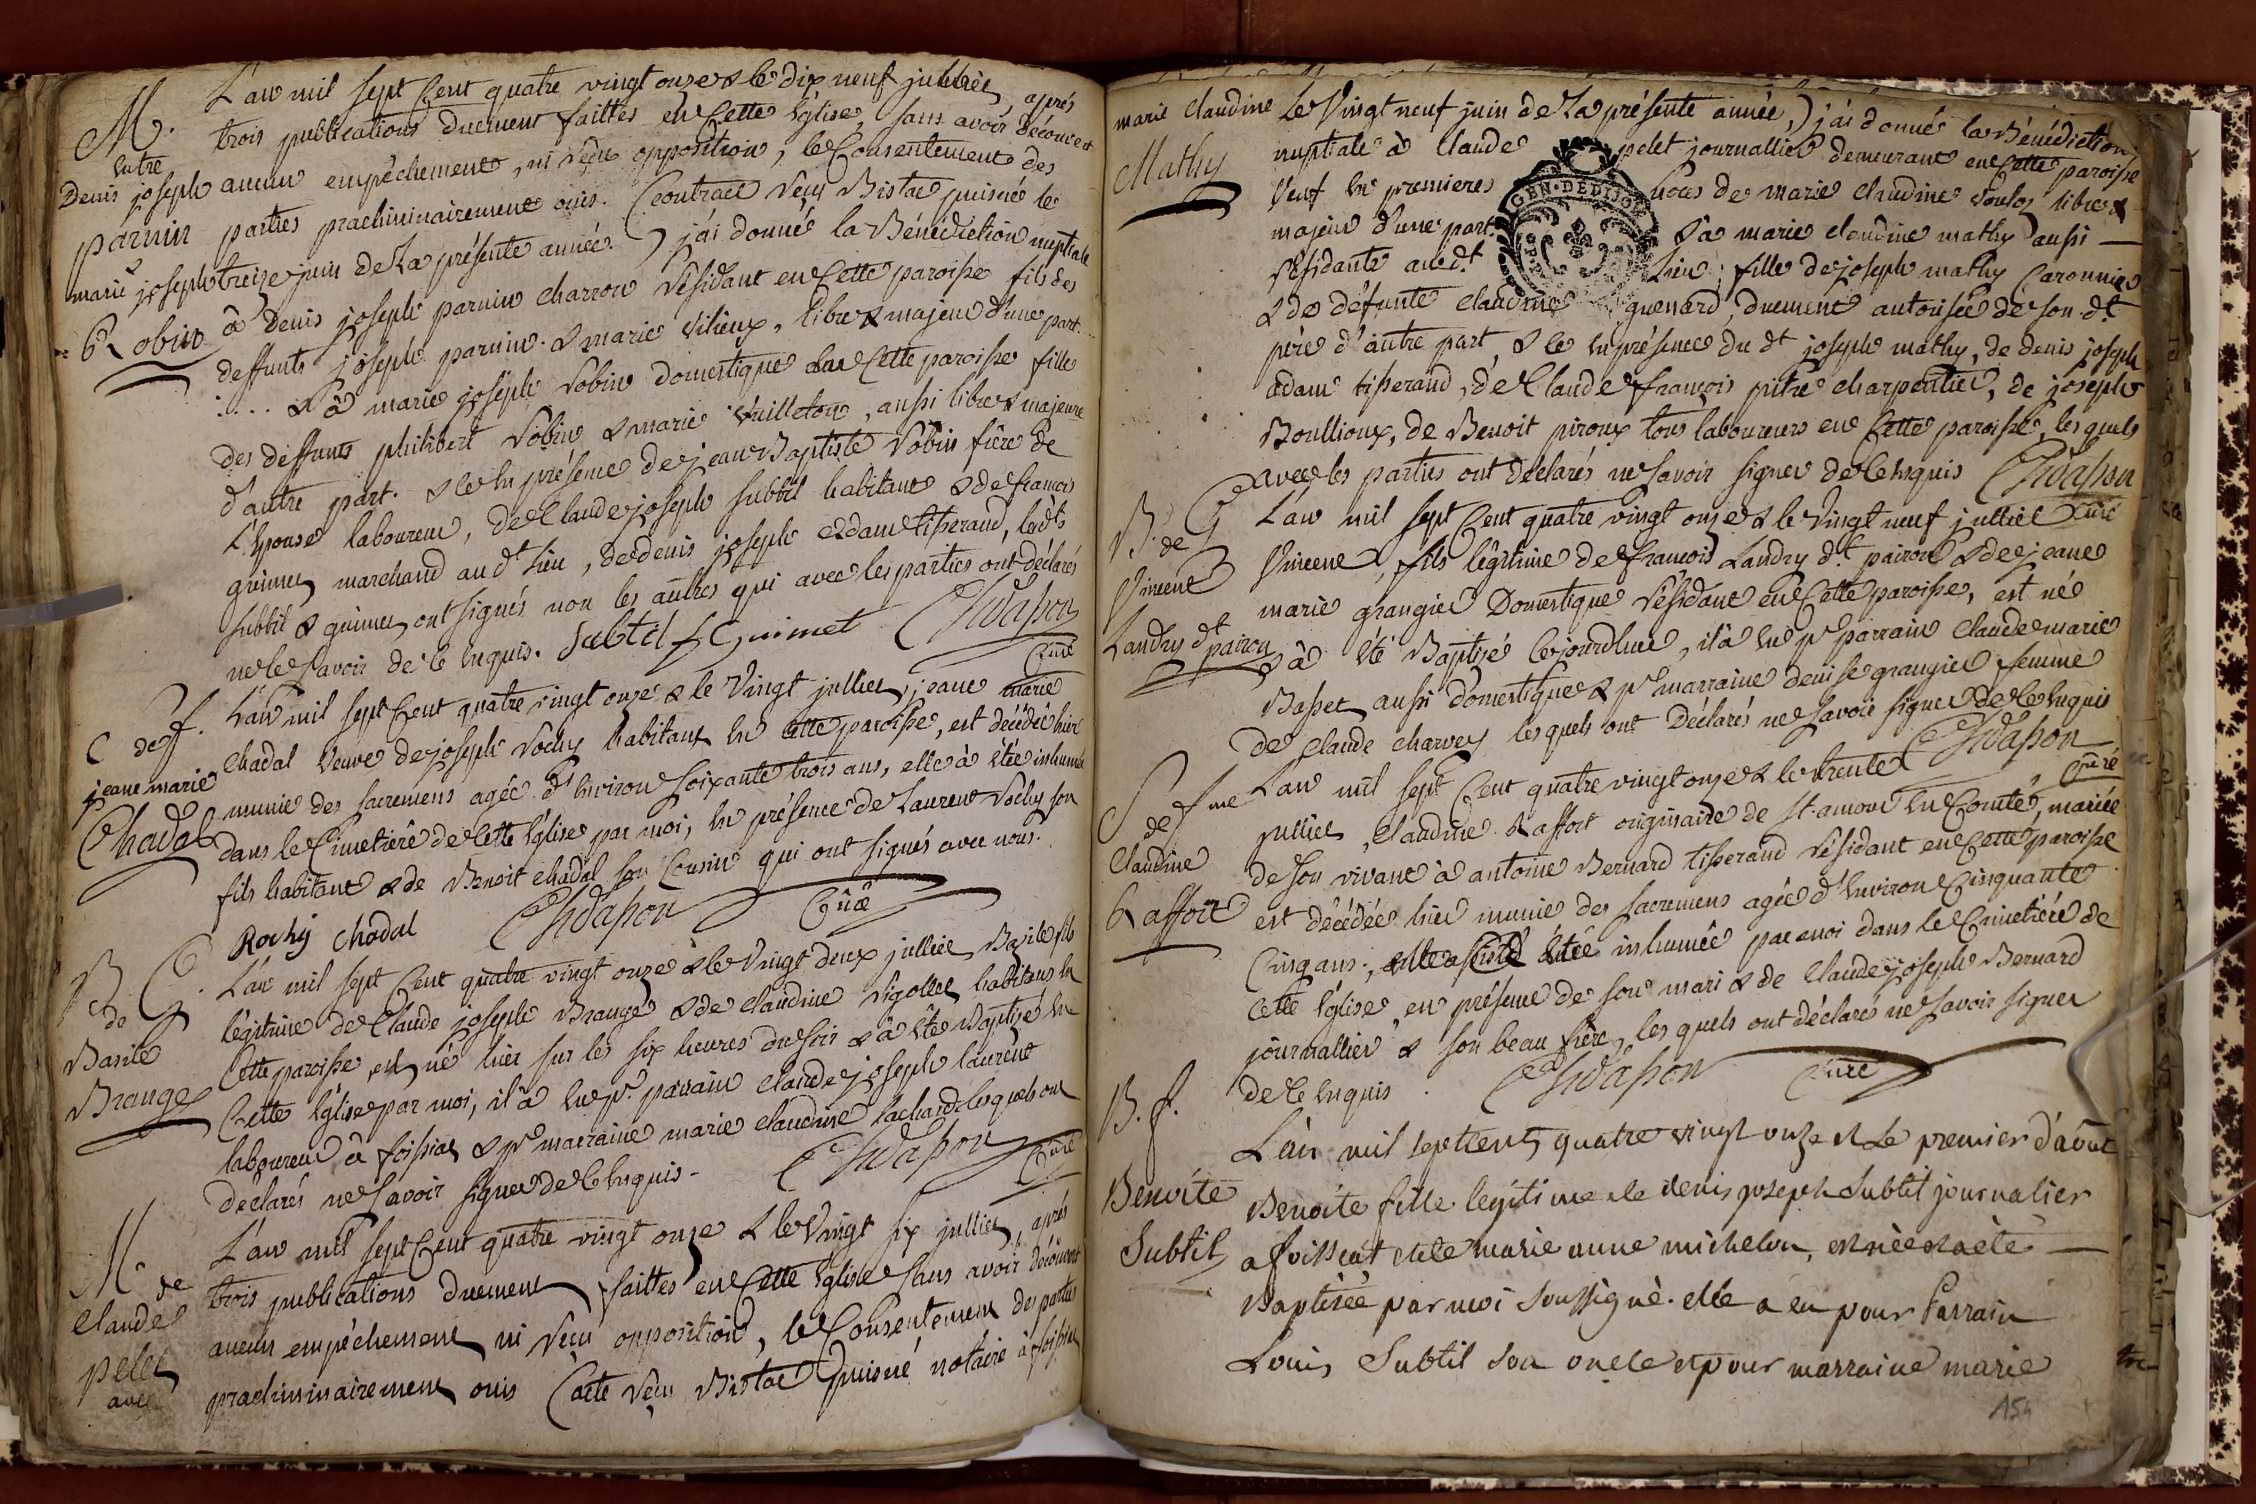 M.
entre
Denis joseph
parnin
&
marie joseph
Robin
L'an mil sept cent quatre vingt onze & le dix neuf julliet, aprés
trois publications duement faittes en cette Eglise, sans avoir découvert
aucun empêchement, ni reçu opposition, le Consentement des
parties praeliminairement ouis. (contract reçu Bistac puisné le
treize juin de La présente année.) j'ai donné la Bénédiction nuptiale
à Denis joseph parnin charron résidant en cette paroisse fils des
deffunts joseph parnin & marie vilieux, libre & majeur d'une part.
.... & à marie joseph robin domestique en cette paroisse fille
des deffunts philibert robin & marie vuilleton, aussi libre & majeure
d'autre part. & ce en présence de jean Baptiste robin frère de
L'épouse laboureur, de Claude joseph subtil habitant & de francois
guimet marchand au dt lieu, de denis joseph adam tisserand, lesdts
subtil & guimet ont signés non les autres qui avec les parties ont déclarés
ne le savoir de ce enquis. Subtil f Guimet Chdasson
Curé
C de f.
jeane marie
Chadal
L'an mil sept cent quatre vingt onze & le Vingt julliet, jeane marie
chadal veuve de joseph rochy habitant en cette paroisse, est décédée hier
munie des sacremens agée d'environ soixante trois ans, elle à étée inhumée
dans le Cimetiére de cette Eglise par moi, en présence de Laurent rochy son
fils habitant & de Benoit chadal son Cousin qui ont signés avec nous.
Rochy chadal Chdasson Curé
B. G.
de
Basile
Brange
L'an mil sept cent quatre vingt onze & le Vingt deux julliet Basile fils
légitime de Claude joseph Brange & de claudine rigollet habitans en
Cette paroisse est né hier sur les six heures du soir & à été Baptisé en
Cette Eglise par moi, il à eu pr. parrain claude joseph laurent
laboureur à foissiat & pr marraine marie claudine lachard lesquels ont
déclarés ne savoir signer de ce enquis. Chdasson Curé
M. de
Claude
pelet
avec
L'an mil sept cent quatre vingt onze & le Vingt six julliet, aprés
trois publications duement faittes en cette Eglise sans avoir découvert
aucun empêchement ni reçu opposition, le Consentement des parties
praeliminairement ouis (acte reçu Bistac puisné notaire à foissiat
marie claudine
Mathy
Le Vingt neuf juin de La présente année,) j'ai donné la Bénédiction
nuptiale à Claude pelet journallier demeurant en cette paroisse
veuf en premieres noces de marie claudine libre &
majeur d'une part. & à marie claudine mathy aussi
résidante au dt. Lieu, fille de joseph mathy
& de défunte claudine guenard, duement autorisée de son dt.
père d'autre part, & ce en présence du dt joseph mathy, de denis joseph
adam tisserand, de Claude françois pitre charpentier, de joseph
Boullioux, de Benoit piroux tous laboureurs en cette paroisse, les quels
avec les parties ont déclarés ne savoir signer de ce enquis Chdasson
Curé
B. G
de
Vincent
Landry dt
pairon
L'an mil sept cent quatre vingt onze & le Vingt neuf julliet
Vincent, fils légitime de françois Landry dt. pairon & de jeane
marie grangier Domestique résidant en cette paroisse, est né
& à été Baptisé cejourdhui, il à eu pr parrain Claude marie
Basset aussi domestique & pr marraine denise grangier femme
de Claude charvey les quels ont Déclarés ne savoir signer de ce enquis
Chdasson
Curé
S fme
de
Claudine
Raffort
L'an mil sept cent quatre vingt onze & le trente
julliet, Claudine Raffort originaire de St. amour en Comté, mariée
de son vivant à antoine Bernard tisserand résidant en cette paroisse
est décédée hier munie des sacremens agée d'environ Cinquante
Cinq ans, étée inhumée par moi dans le Cimetiére de
cette Eglise, en présence de son mari & de Claude joseph Bernard
journallier & son beau frère, les quels ont déclarés ne savoir signer
de ce enquis. Chdasson Curé
B. f.
Benoite
Subtil
L'an mil sept cent quatre vingt onze et Le premier d'août
Benoite fille legitime de denis joseph Subtil journalier
a foissiat et de marie anne michelon, est née et a été
Baptisée par moi Soussigné. elle a eu pour Parrain
Louis Subtil son oncle et pour marraine marie
154
GEN. DE DIJON